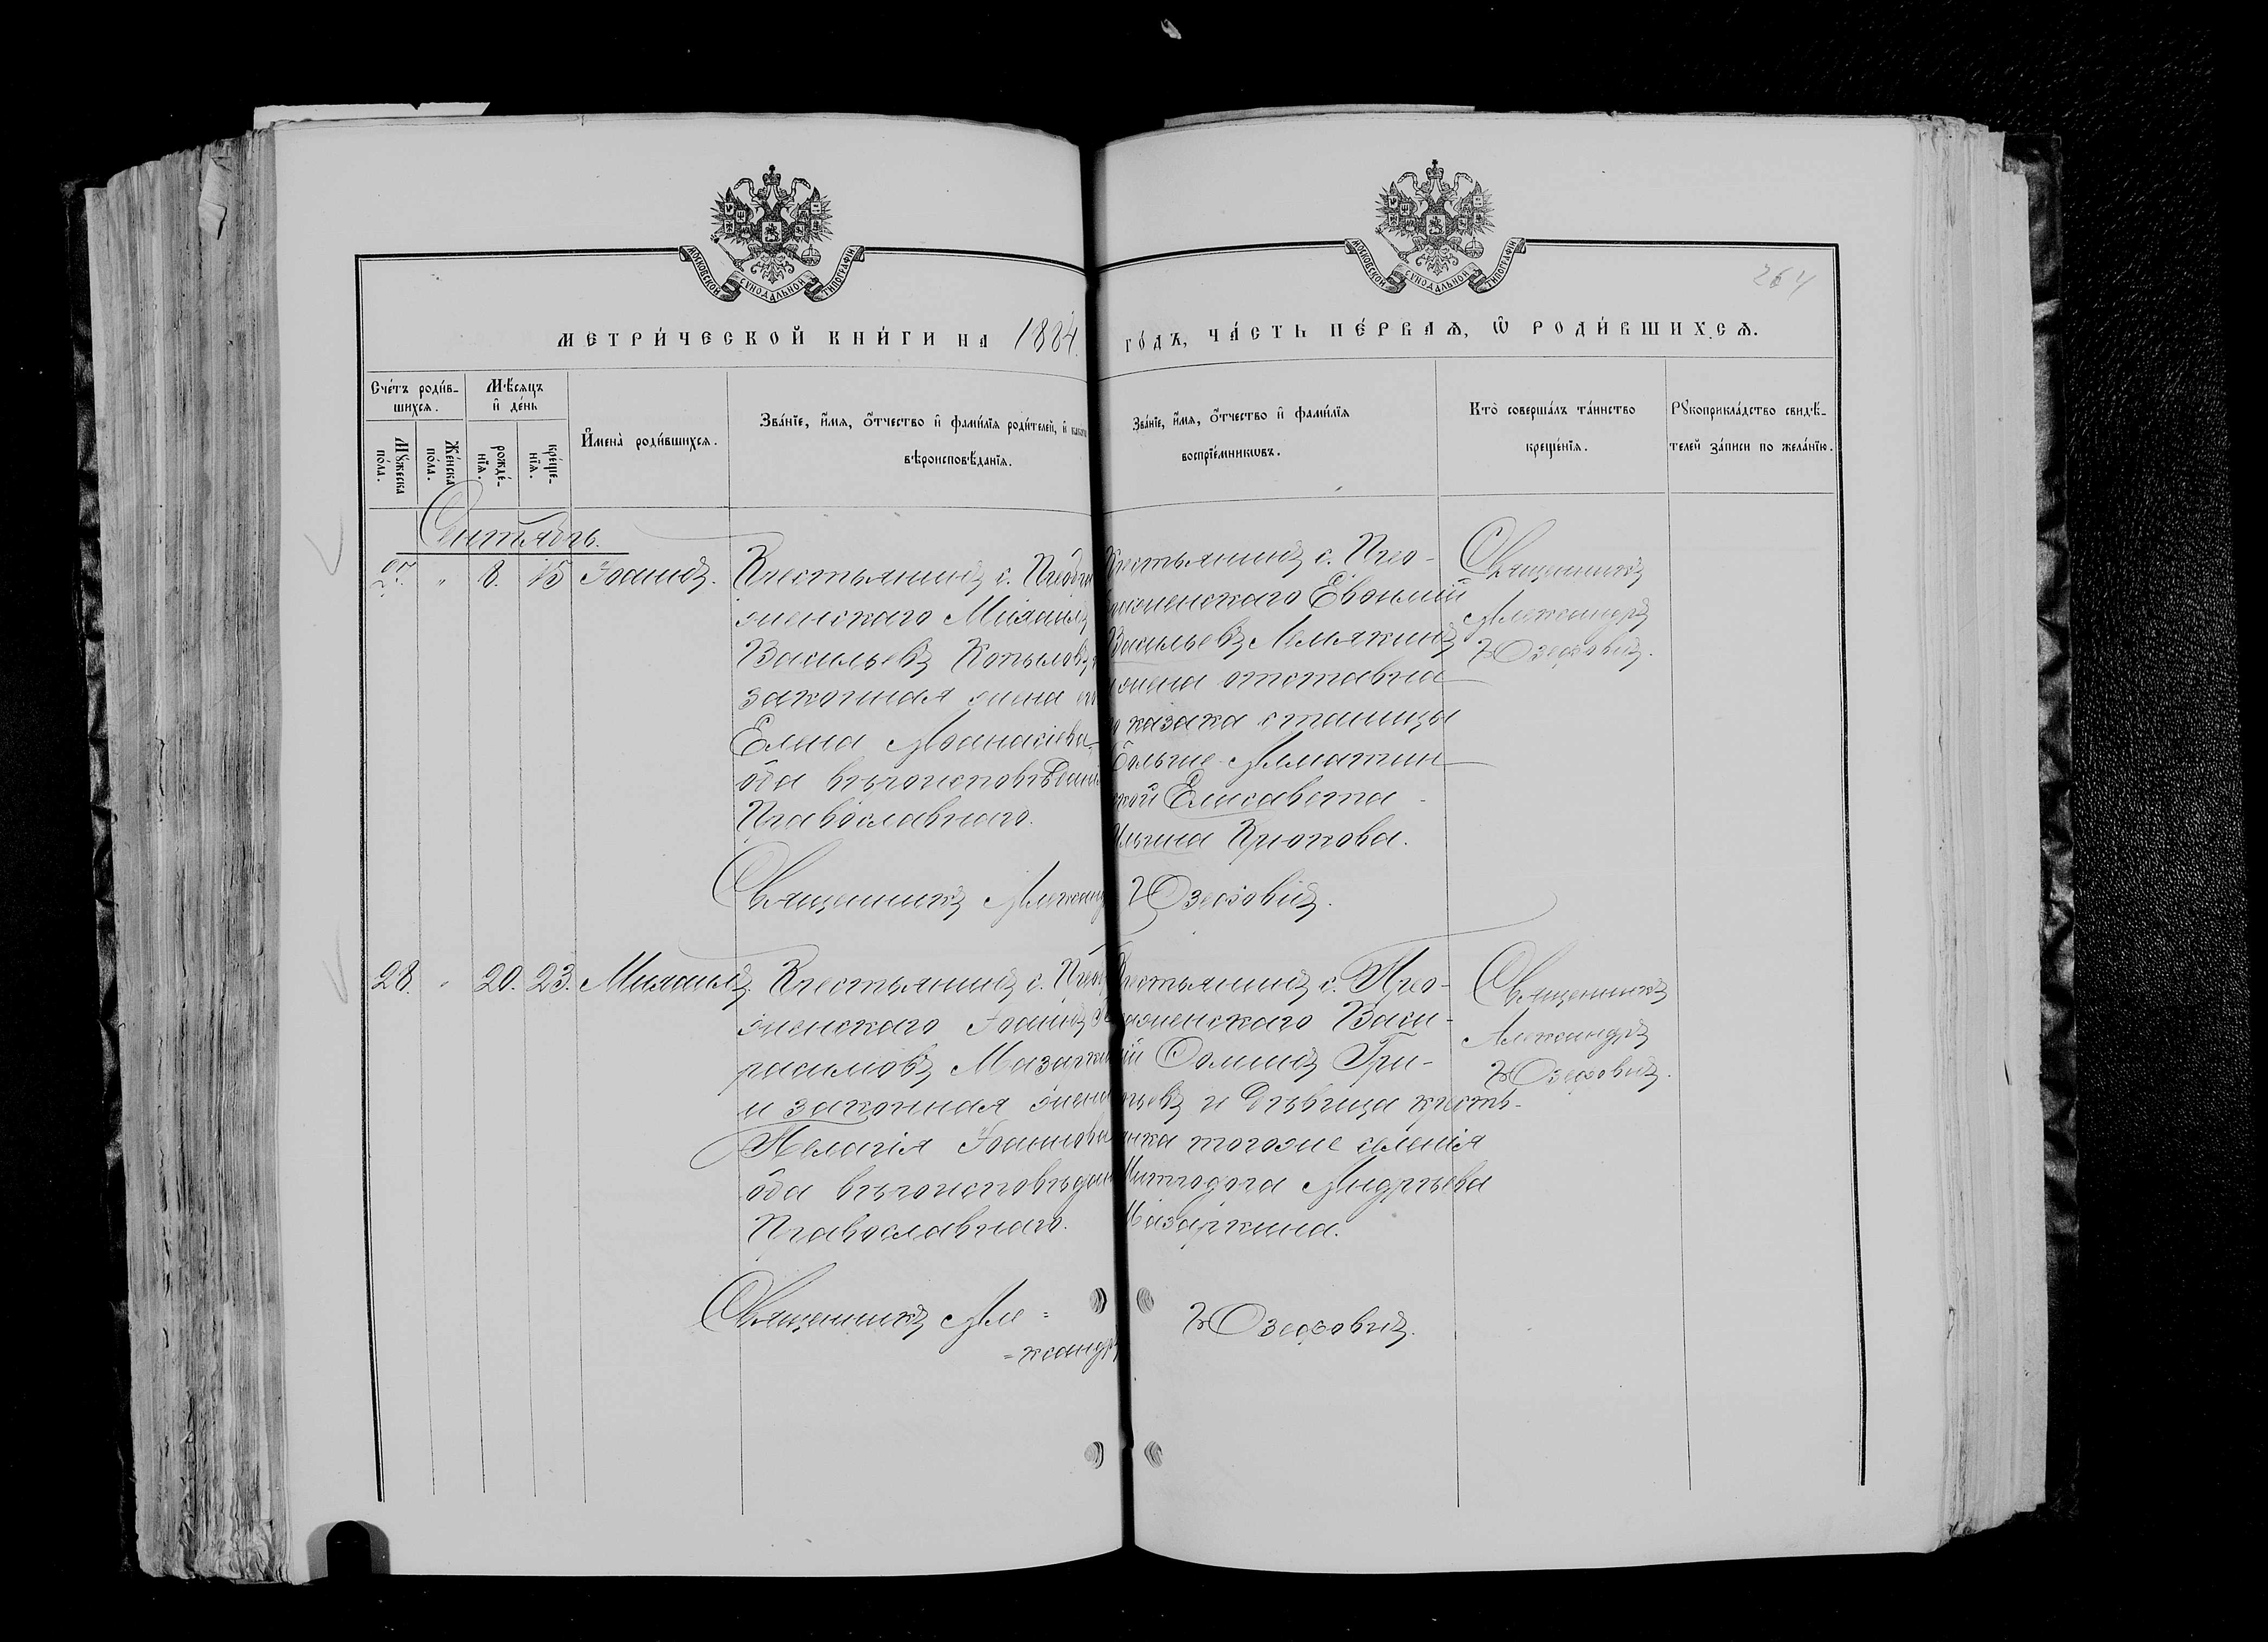 МОСКОВСКОЙ СУНОДАЛЬНОЙ ТИПОГРАФІИ
МОСКОВСКОЙ СУНОДАЛЬНОЙ ТИПОГРАФІИ
264
МЕТРИ́ЧЕСКОЙ КНИ́ГИ НА 1884.
ГО́ДЪ, ЧА́СТЬ ПЕ́РВАѦ, Ѡ РОДИ́ВШИХСѦ.
Сче́тъ роди́в-
шихсѧ.
Мѣ́сѧцъ
и де́нь
Мꙋ́жеска
по́ла.
Же́нска
по́ла.
рожде́-
нїѧ.
креще́-
нїѧ.
Имена̀ роди́вшихсѧ.
Зва́нїе, и́мѧ, о́тчество и фами́лїѧ роди́телей, и
вѣроисповѣ́данїѧ.
Зва́нїе, и́мѧ, о́тчество и фами́лїѧ
воспрїе́мникѡвъ.
Кто̀ соверша́лъ та́инство
креще́нїѧ.
Рꙋкоприкла́дство свидѣ́-
телей за́писи по жела́нїю.
Сентябрь.
27. " 8. 15 Іоаннъ.
Крестьянинъ с. Преобра
женскаго Михаилъ
Васильевъ Копыловъ и
законная жена его
Елена Аѳанасіева
оба вѣроисповѣданія
Православнаго.
Крестьянинъ с. Прео-
браженскаго Евѳимій
Васильевъ Лемякинъ
жена отставна
го казака станицы
Больше-Алматин
ской Елисавета
Ильина Крюкова.
Священникъ
Александръ
Юзефовичъ.
Священникъ Александ Юзефовичъ.
28. " 20. 23. Михаилъ.
Крестьянинъ с. Преоб
женскаго Іоаннъ Ге
расимовъ Мазаркинъ
и законная жена
Пелагія Іоаннова
оба вѣроисповѣдан
Православнаго.
Крестьянинъ с. Прео-
браженскаго Васи-
лій Ѳоминъ Гри-
горьевъ и дѣвица кресть-
янка тогоже селенія
Митродора Андреева
Мазаркина.
Священникъ
Александръ
Юзефовичъ.
Священникъ Але=
=ксандръ Юзефовичъ.